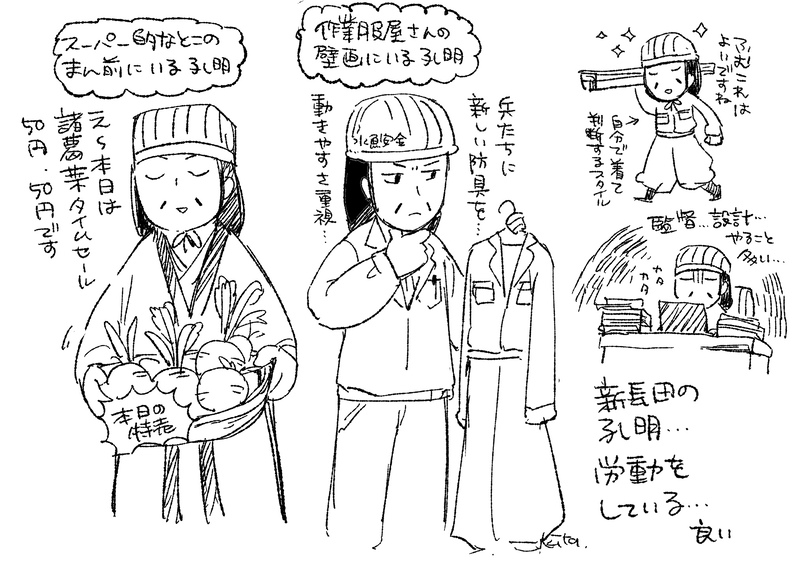 スーパー的なとこの
まん前にいる孔明
え〜本日は
諸葛菜タイムセール
50円・50円です
本日の
特売
作業服屋さんの
壁画にいる孔明
兵たちに
新しい防具を…
動きやすさ重視…
安全
ふむこれは
よいですね
自分で着て
判断するスタイル
監督…設計…
やること
多い…
カタ
カタ
新長田の
孔明…
労働を
している…
良い
Keita.